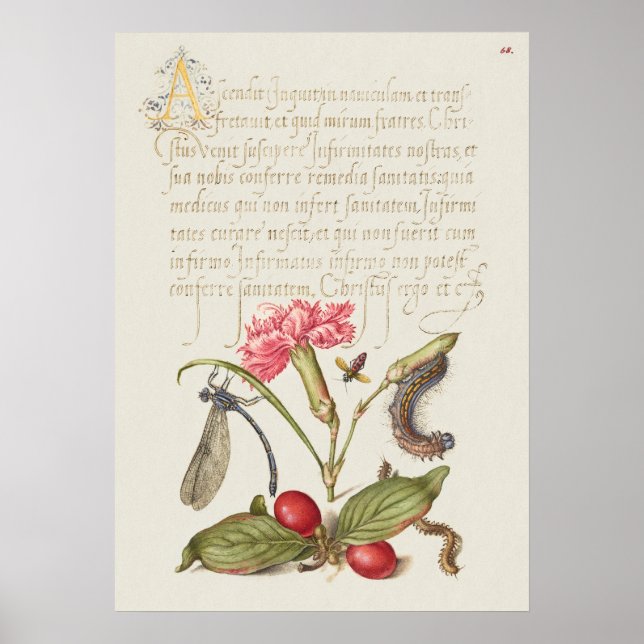 68.
Ascendit, Inquit, in nauiculam, et trans-
fretauit, et quid mirum fratres. Chri-
stus venit suscipere Infirmitates nostras, et
sua nobis conferre remedia sanitatis: quia
medicus qui non infert sanitatem, Infirmi
tates curare nescit, et qui non fuerit cum
infirmo. Infirmatus infirmo non potest
conferre sanitatem, Christus ergo et c